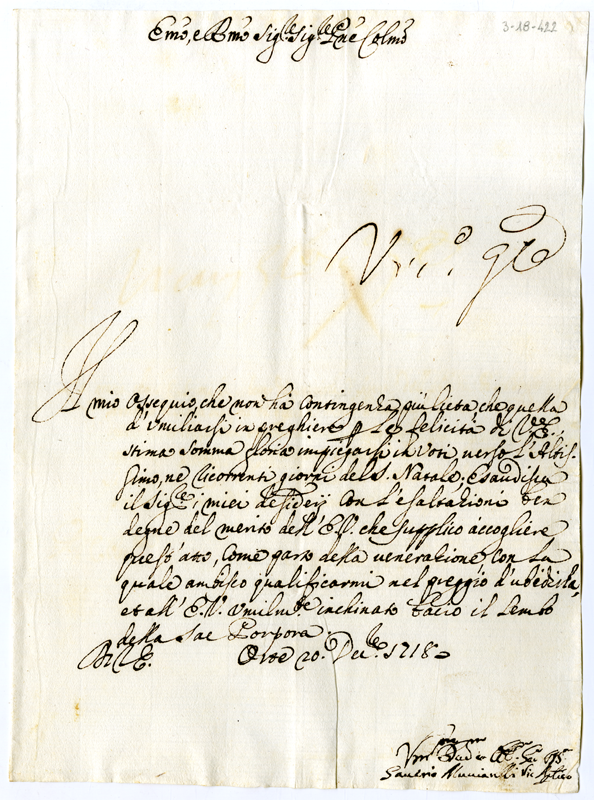 Emo, e Rmo Sigre Sigre Pne Colmo
3-18-422
Il mio Ossequio, che non hà contingenza più lieta, che quella
d'umiliarsi in preghiere p le felicità di V.E.,
stima somma gloria impiegarsi in voti verso l'Altis-
simo, ne ricorrenti giorni del S. Natale; Esaudisca
il Sigre i miei desiderij con l'esaltazioni ben
degne del merito dell'E.V. che supplico accogliere
quest'atto, come parto della venerazione, con la
quale ambisco qualificarmi nel preggio d'ubidirla,
et all'E.V. umilmte inchinato bacio il lembo
della Sac Porpora.
Di V.E. Orte 20. Decre 1718
Saverio